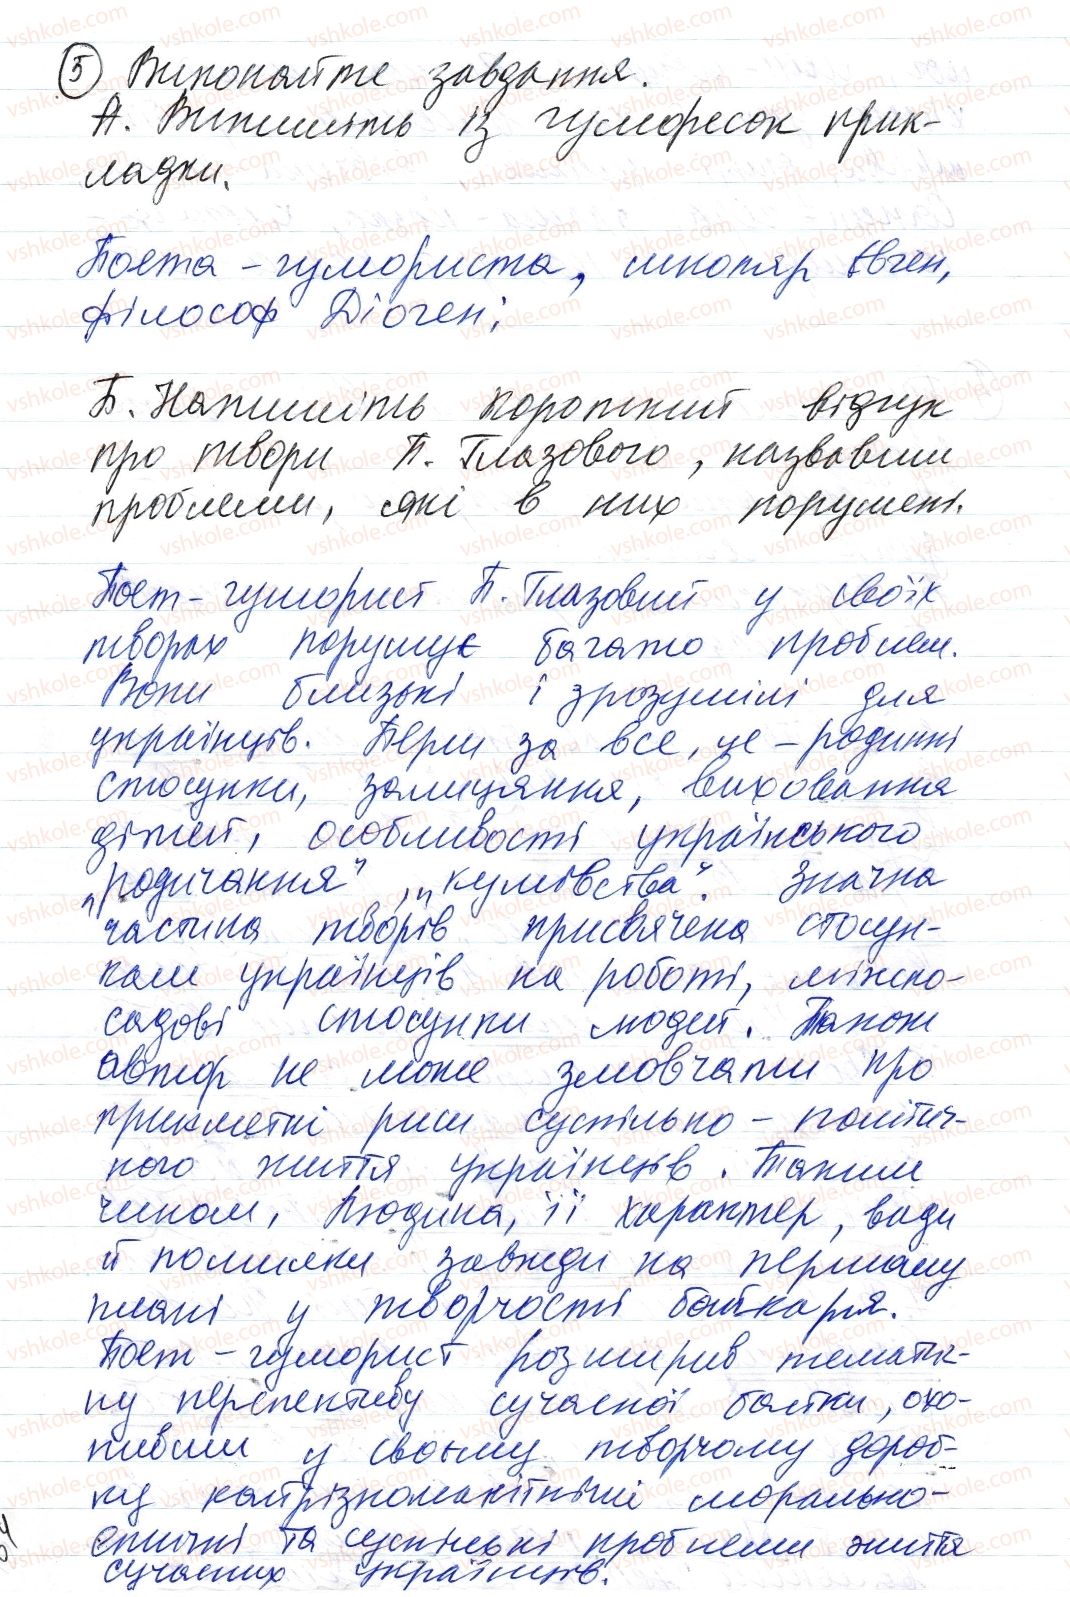 5 Виконайте завдання.
А. Випишіть із гуморесок прик-
ладки.
Поета-гумориста, школяр Євген,
філософ Діоген;
Б. Напишіть короткий відгук
про твори П. Глазового, назвавши
проблеми, які в них порушені.
Поет-гуморист П. Глазовий у своїх
творах порушує багато проблем.
Вони близькі і зрозумілі для
українців. Перш за все, це - родинні
стосунки, залицяння, виховання
дітей, особливості українського
„родичання", „кумівства". Значна
частина творів присвячена стосун-
кам українців на роботі, міжпо-
садові стосунки людей. Також
автор не може змовчати про
прикметні риси суспільно-політич-
ного життя українців. Таким
чином, людина, її характер, вади
й помилки завжди на першому
плані у творчості байкаря.
Поет-гуморист розширив тематич-
ну перспективу сучасної байки, охо-
пивши у своєму творчому дороб-
ку найрізноманітніші морально-
етичні та суспільні проблеми життя
сучасних українців.